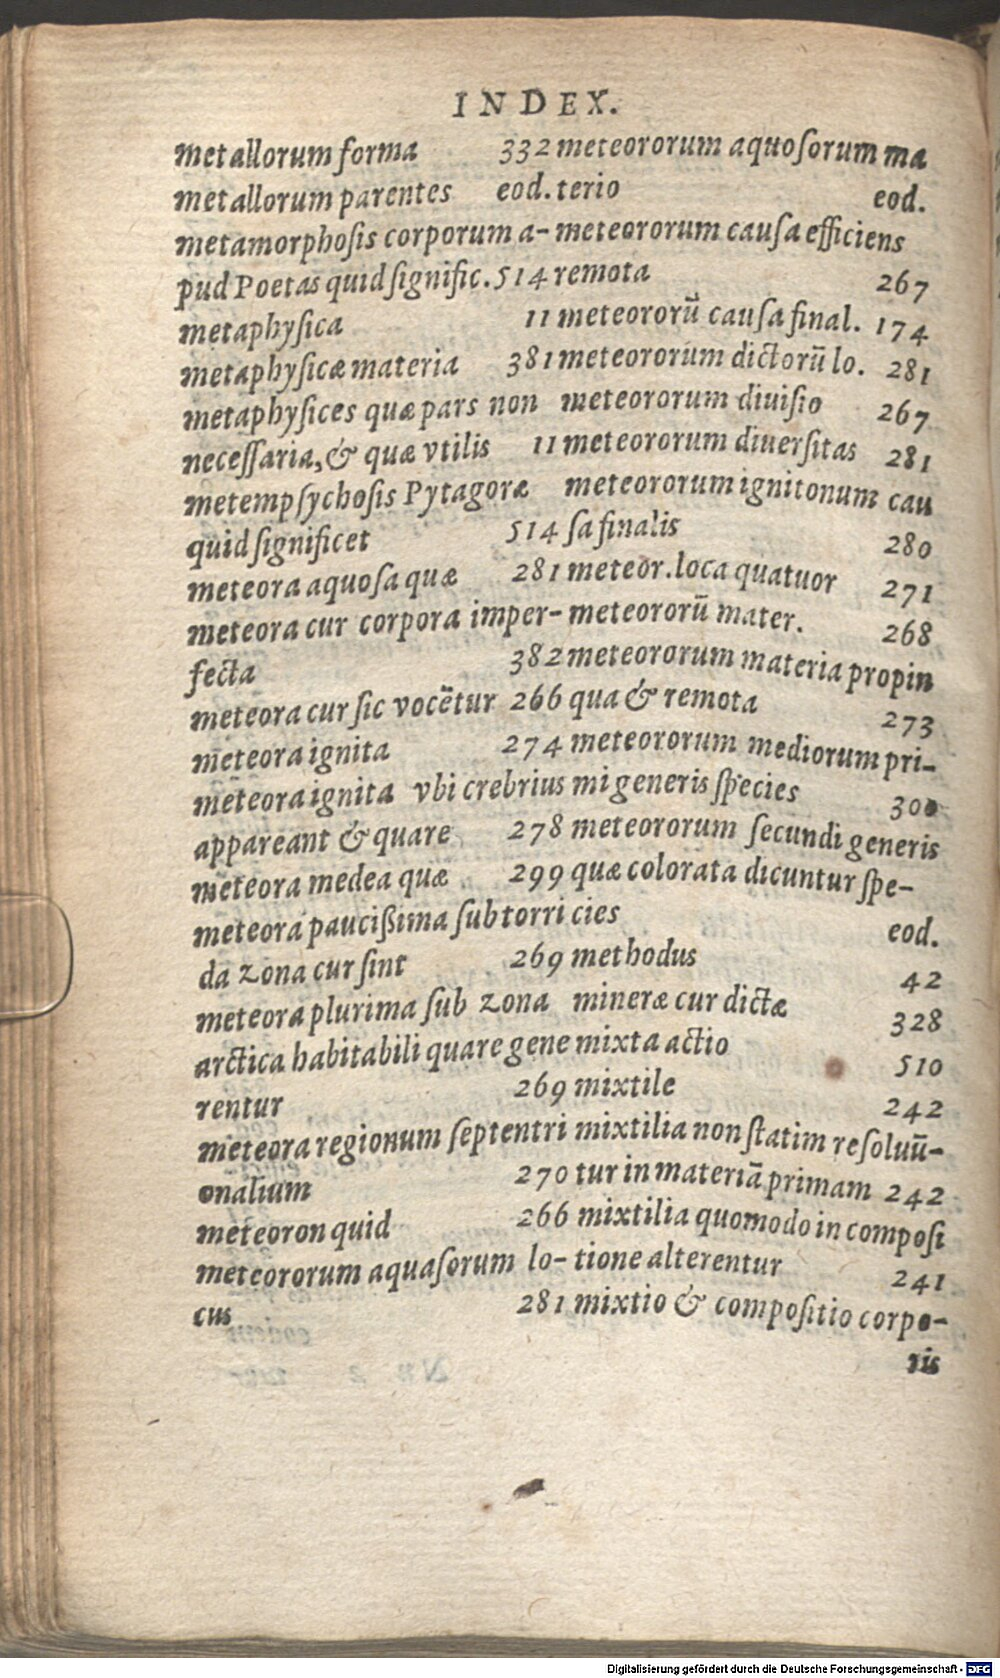 INDEX.
metallorum forma 332
metallorum parentes eod.
metamorphosis corporum a-
pud Poetas quid signific. 514
metaphysica 11
metaphysicæ materia 381
metaphysices quæ pars non
necessaria, & quæ vtilis 11
metempsychosis Pytagoræ
quid significet 514
meteora aquosa quæ 281
meteora cur corpora imper-
fecta 382
meteora cur sic vocētur 266
meteora ignita 274
meteora ignita vbi crebrius
appareant & quare 278
meteora medea quæ 299
meteora paucißima sub torri
da zona cur sint 269
meteora plurima sub zona
arctica habitabili quare gene
rentur 269
meteora regionum septentri
onalium 270
meteoron quid 266
meteororum aquasorum lo-
cus 281
meteororum aquosorum ma
terio eod.
meteororum causa efficiens
remota 267
meteororū causa final. 174
meteororum dictorū lo. 281
meteororum diuisio 267
meteororum diuersitas 281
meteororum ignitonum cau
sa finalis 280
meteor. loca quatuor 271
meteororū mater. 268
meteororum materia propin
qua & remota 273
meteororum mediorum pri-
mi generis species 300
meteororum secundi generis
quæ colorata dicuntur spe-
cies eod.
methodus 42
mineræ cur dictæ 328
mixta actio 510
mixtile 242
mixtilia non statim resoluū-
tur in materiā primam 242
mixtilia quomodo in composi
tione alterentur 241
mixtio & compositio corpo-
ris
Digitalisierung gefördert durch die Deutsche Forschungsgemeinschaft - DFG